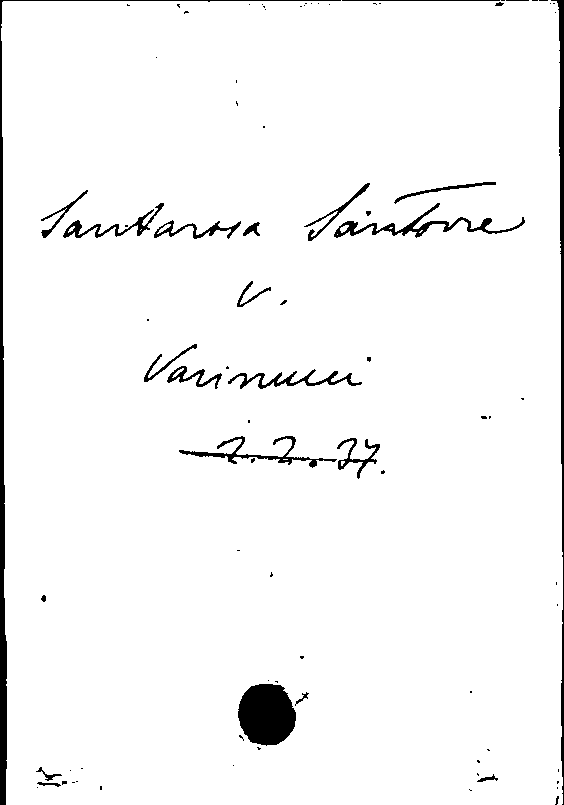 Santarosa Santorre
v.
Varinucci
2.2.37.